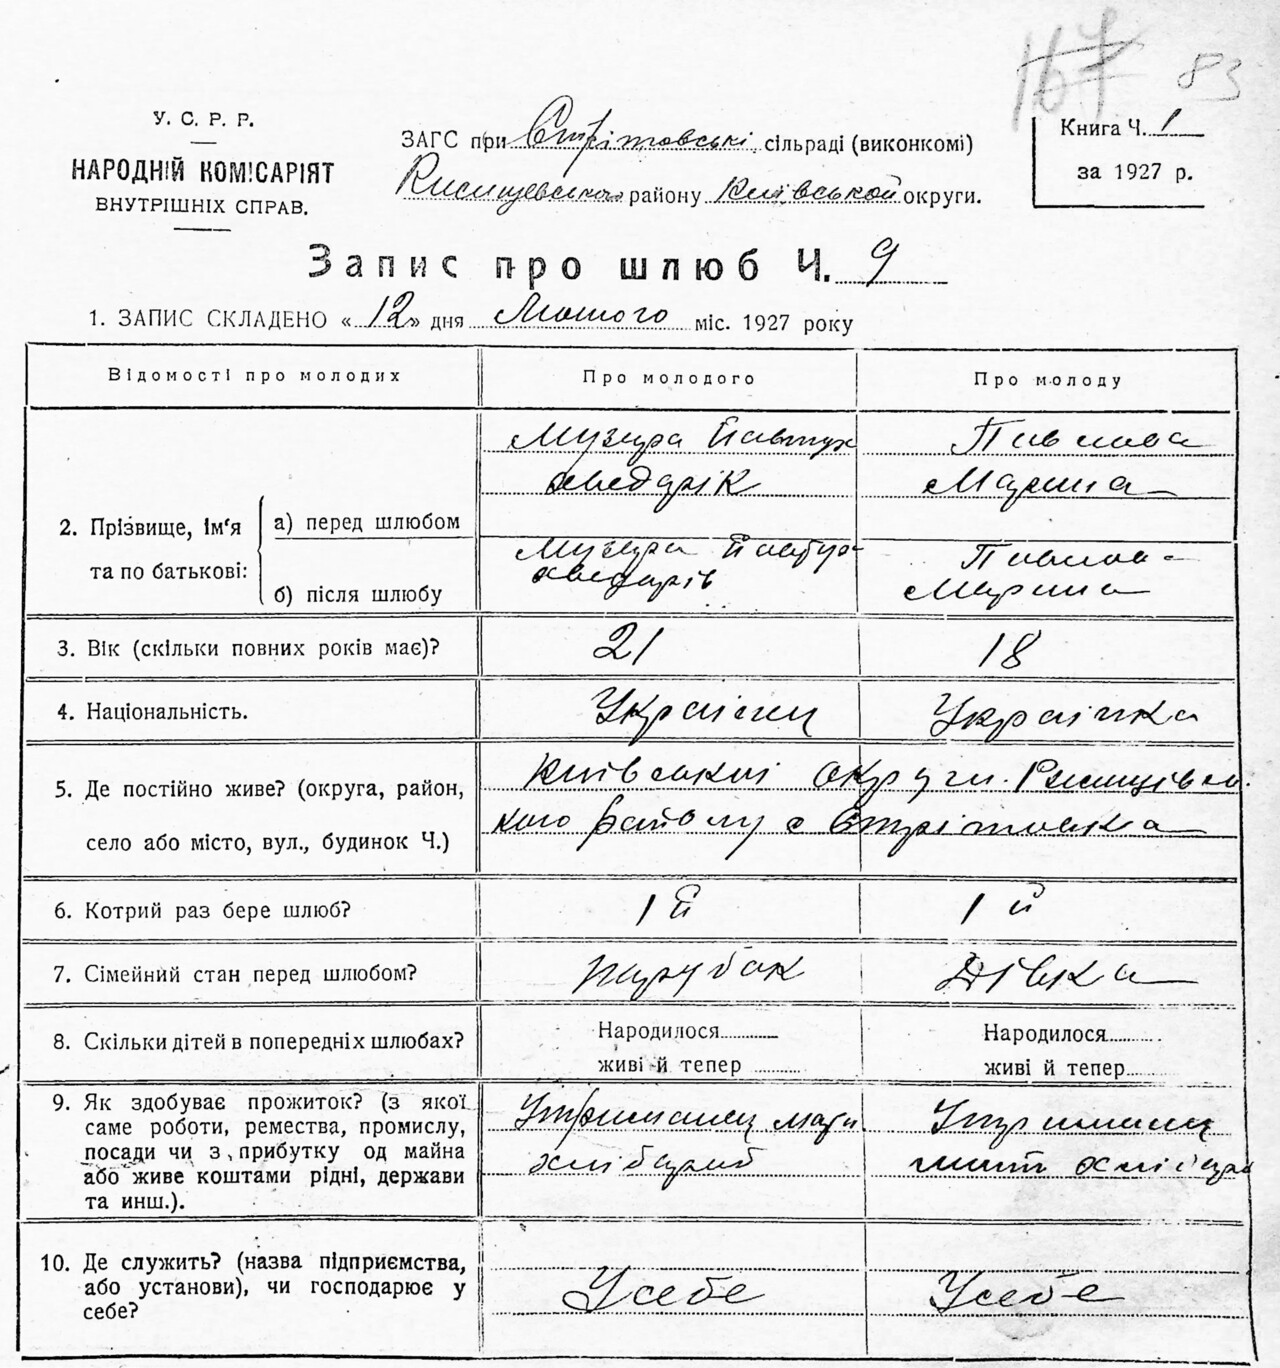 167 83
У. С. Р. Р.
НАРОДНІЙ КОМІСАРІЯТ
ВНУТРІШНІХ СПРАВ.
ЗАГС при Стрітовські сільраді (виконкомі)
району Київськой округи.
Книга Ч. 1
за 1927 р.
Запис про шлюб Ч. 9
1. ЗАПИС СКЛАДЕНО «12» дня Лютого міс. 1927 року
Відомості про молодих Про молодого Про молоду
2. Прізвище, ім'я та по батькові:
а) перед шлюбом Музира Павлова
Марина
б) після шлюбу Музира
Марина
3. Вік (скільки повних років має)? 21 18
4. Національність. Українец Українка
5. Де постійно живе? (округа, район, Київській округи
село або місто, вул., будинок Ч.) кого району с Стрітовка
6. Котрий раз бере шлюб? 1й 1й
7. Сімейний стан перед шлюбом? парубок Дівка
8. Скільки дітей в попередніх шлюбах? Народилося Народилося
живі й тепер живі й тепер
9. Як здобуває прожиток? (з якої
саме роботи, ремества, промислу,
посади чи з прибутку од майна
або живе коштами рідні, держави
та инш.).
Утриманец
хлібороб
10. Де служить? (назва підприємства,
або установи), чи господарює у
себе?
Усебе Усебе